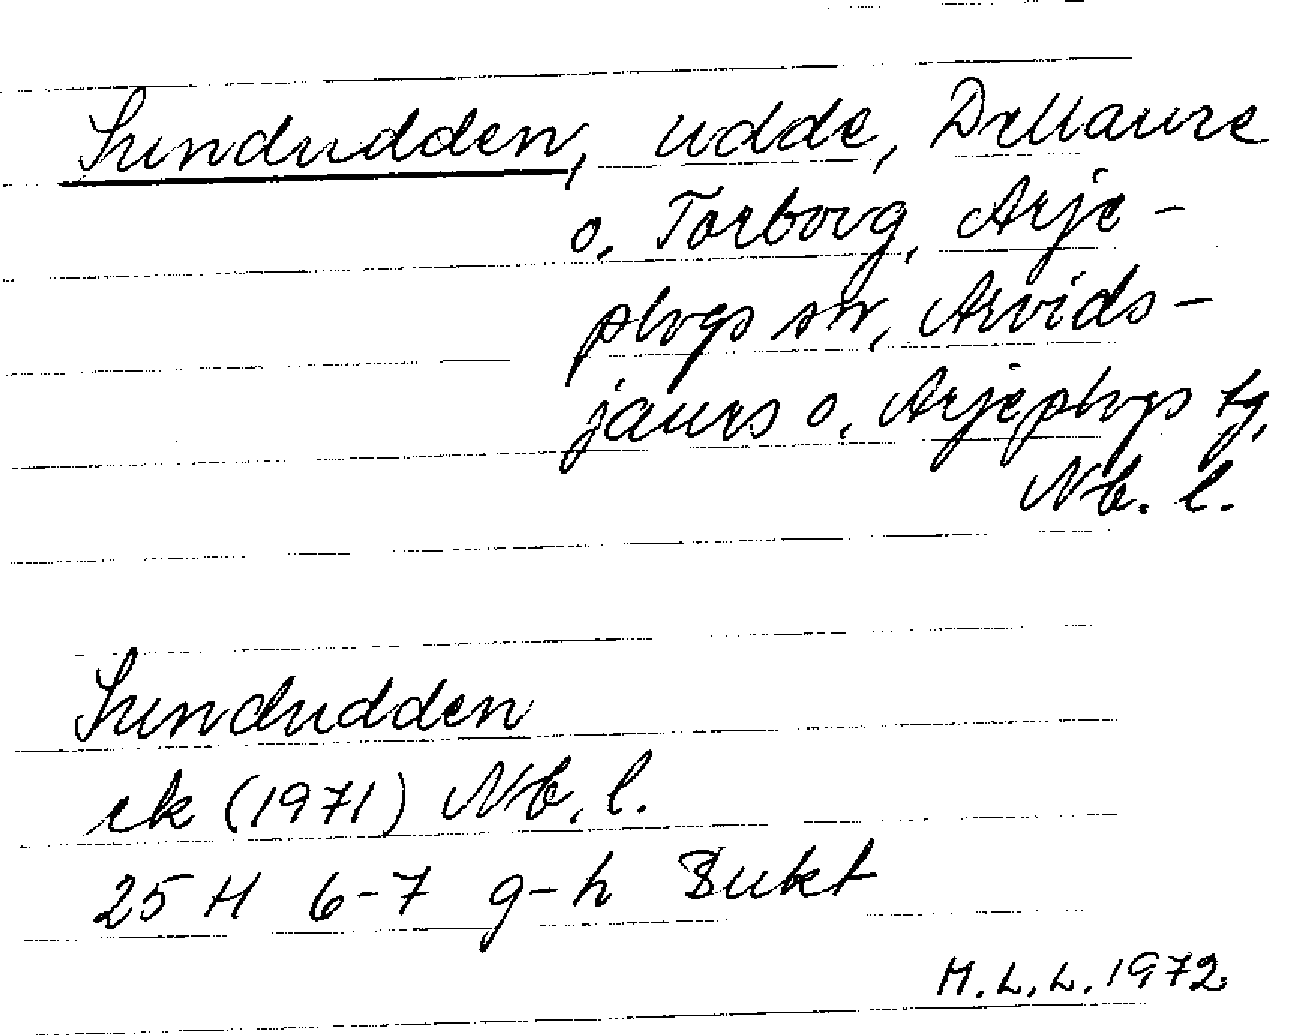 Sundudden, udde, Dellaure
o. Torborg, Arje-
plogs sn, Arvids-
jaurs o. Arjeplogs tg,
Nb. l.
Sundudden
ek (1971) Nb. l.
25 H 6-7 g-h Bukt
M. L. L. 1972